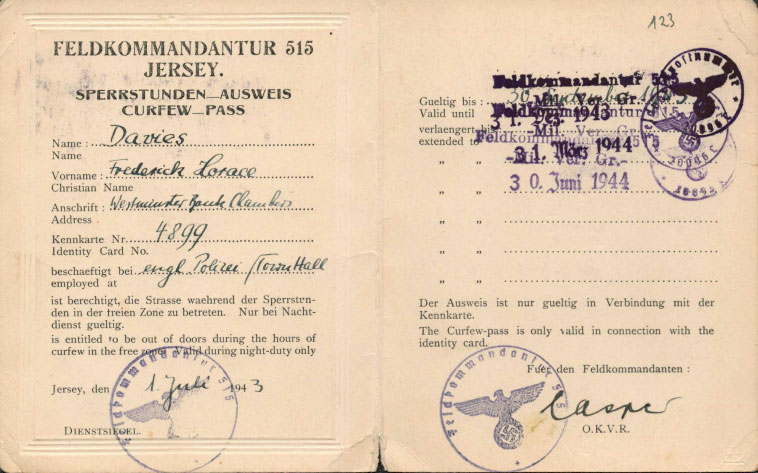 FELDKOMMANDANTUR 515
JERSEY.
SPERRSTUNDEN—AUSWEIS
CURFEW—PASS
Name : Davies
Name
Vorname : Frederick Horace
Christian Name
Anschrift : Westminster Bank Chambers
Address
Kennkarte Nr. 4899
Identity Card No.
beschaeftigt bei engl Polizei /Town Hall
employed at
ist berechtigt, die Strasse waehrend der Sperrstun-
den in der freien Zone zu betreten. Nur bei Nacht-
dienst gueltig.
is entitled to be out of doors during the hours of
curfew in the free zone. Valid during night-duty only
Jersey, den 1. Juli 1943
Feldkommandantur 515
DIENSTSIEGEL.
123
Feldkommandantur 515
Gueltig bis : 30. September 1943.
-Mil. Ver. Gr.-
Valid until
31. Dez. 1943
Feldkommandantur 515
verlaengert bis
-Mil. Ver. Gr.-
extended to
31. März 1944
Feldkommandantur 515
" " -Mil. Ver. Gr.-
" " 30. Juni 1944
" "
" "
" "
" "
Der Ausweis ist nur gueltig in Verbindung mit der
Kennkarte.
The Curfew-pass is only valid in connection with the
identity card.
Fuer den Feldkommandanten :
Feldkommandantur 515
O.K.V.R.